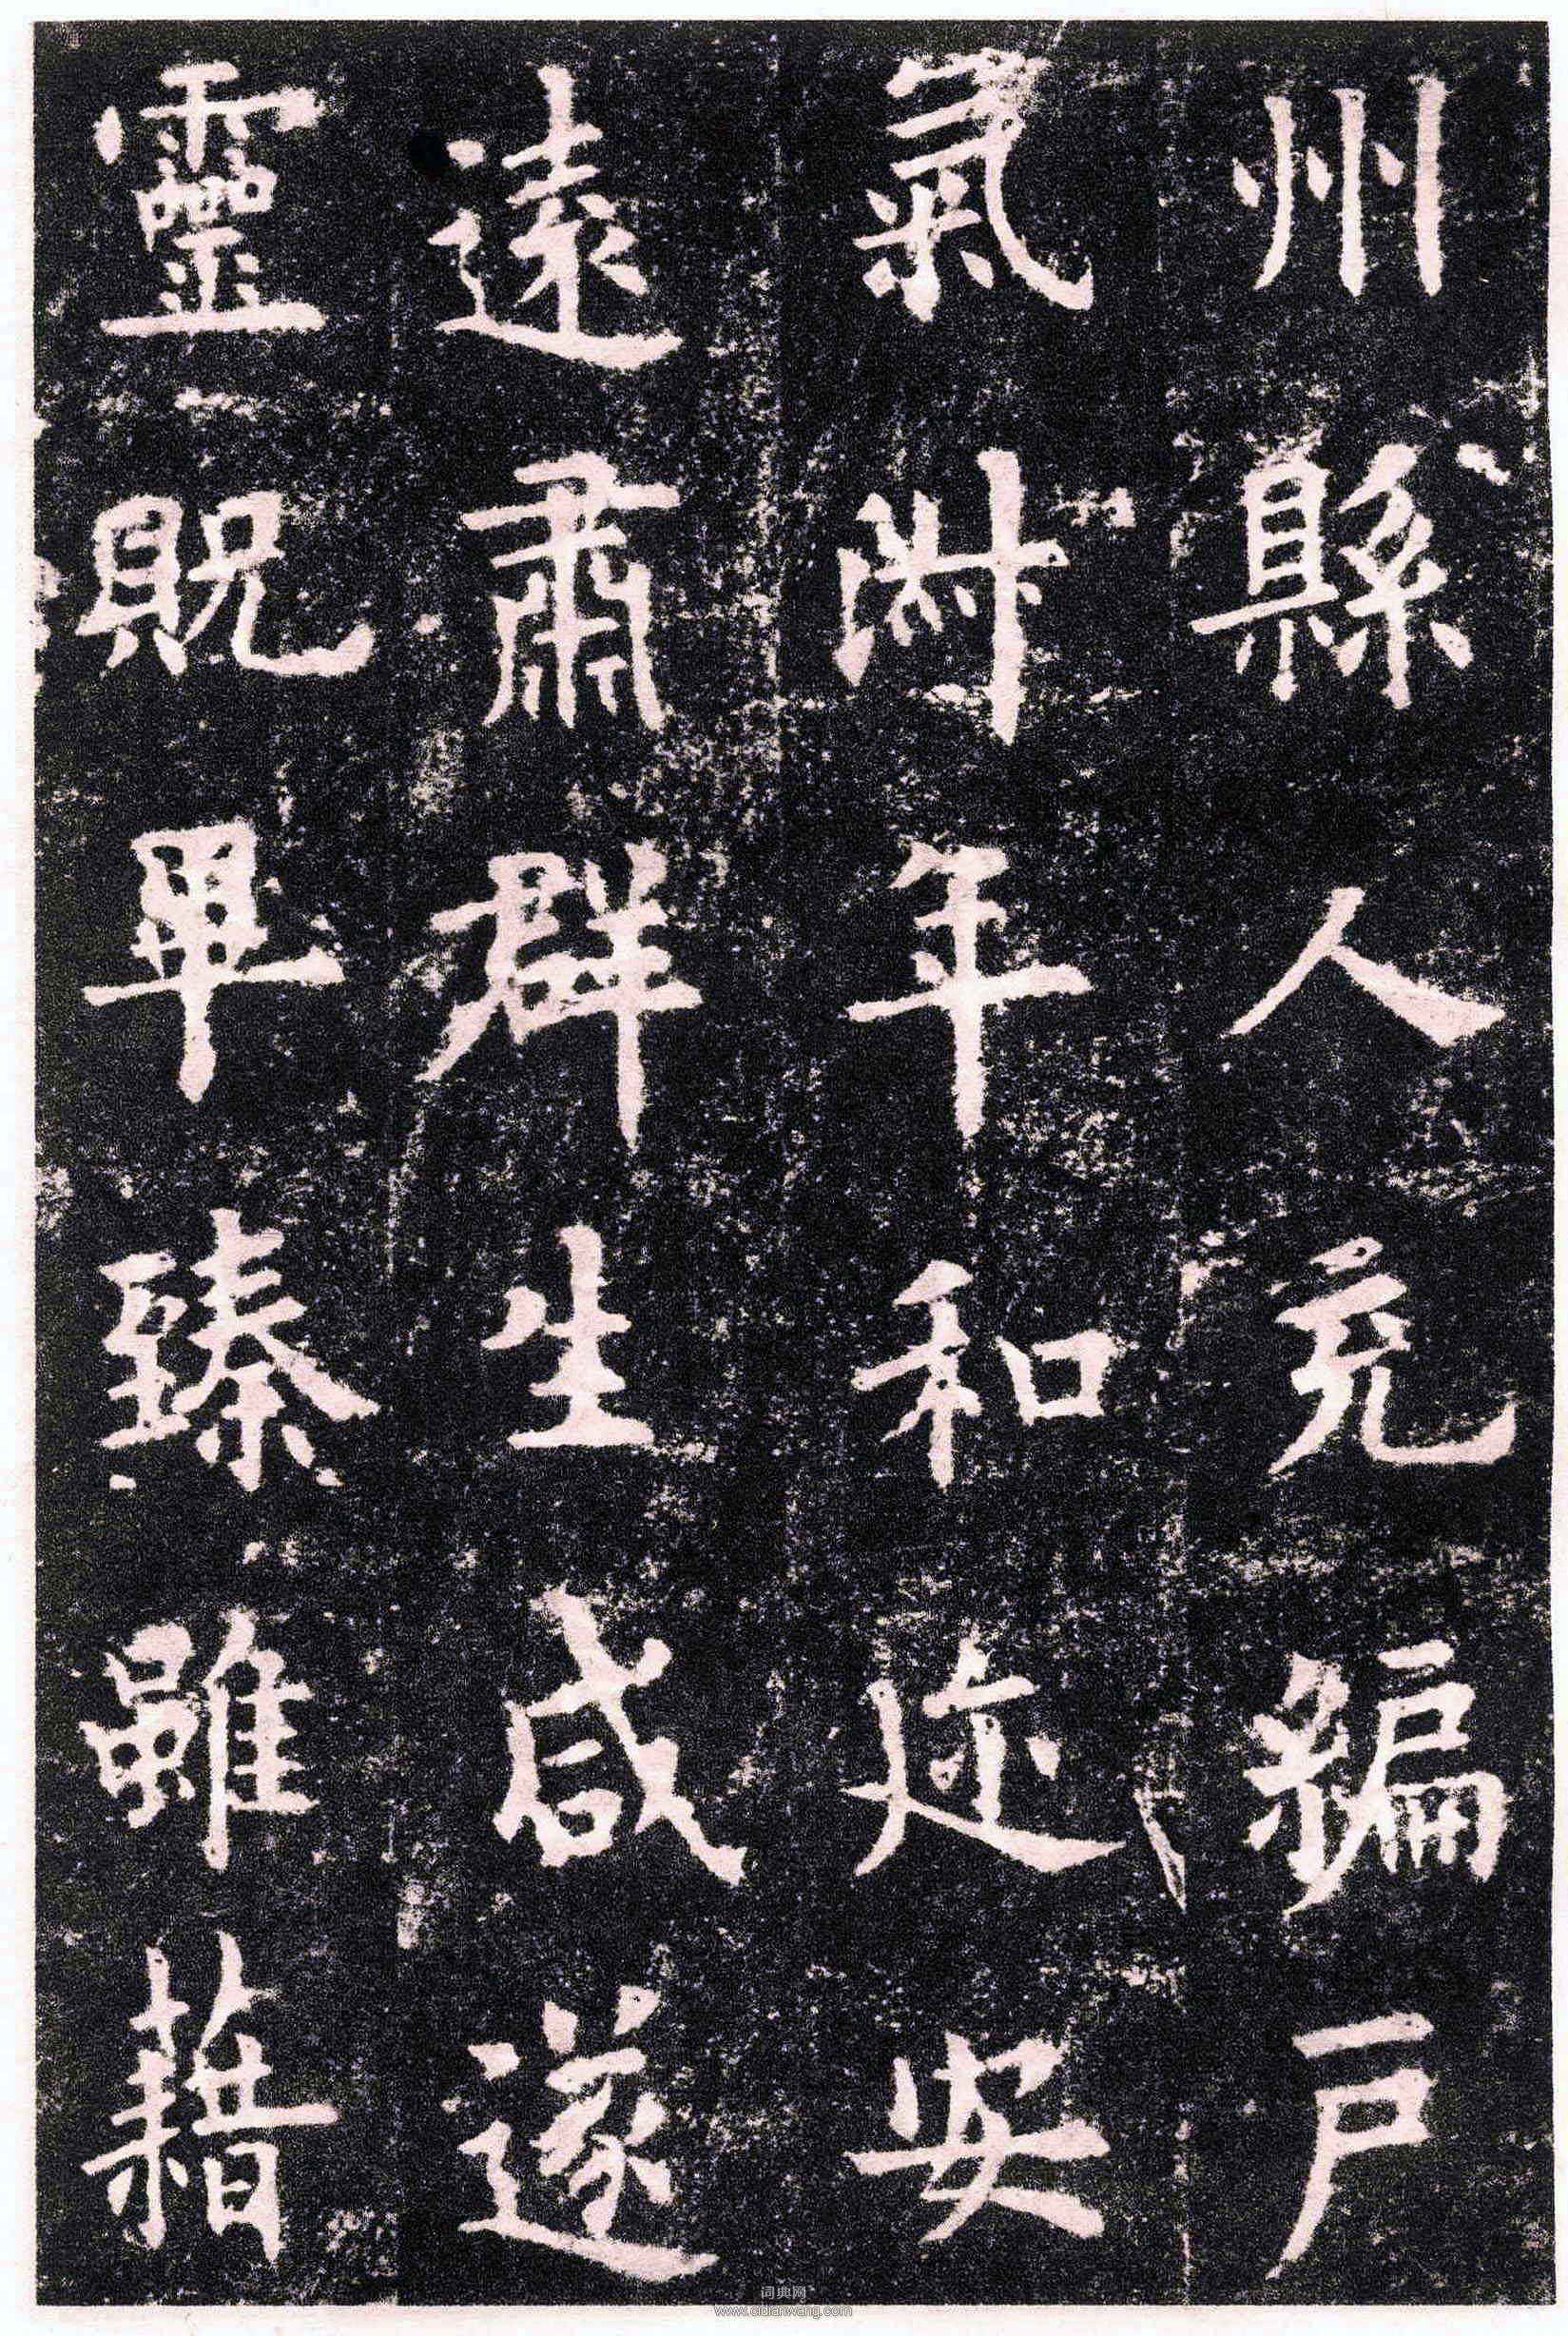 州縣人充編戶
氣淑年和迩安
遠肅群生咸遂
靈貺畢臻雖藉
词典网
www.cidianwang.com